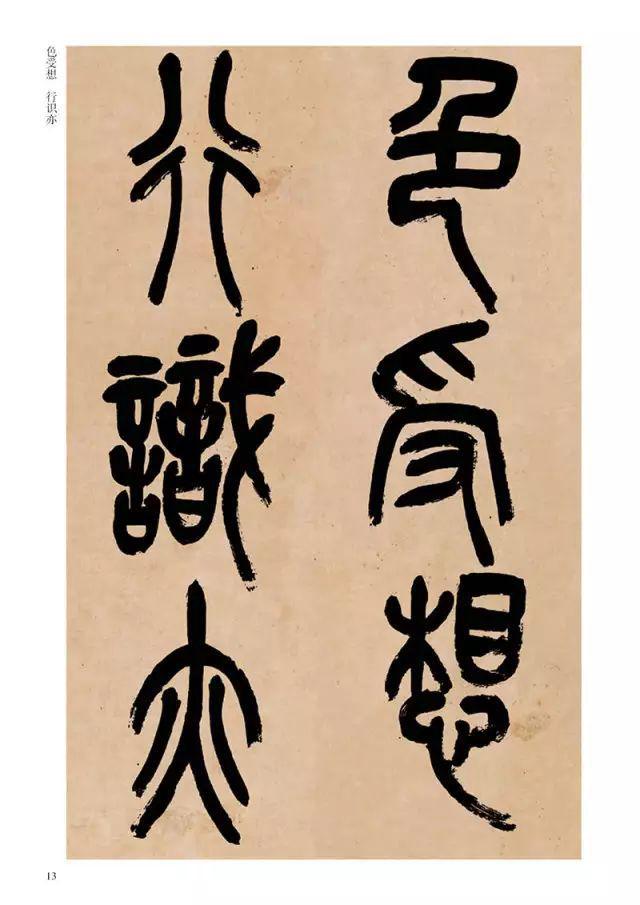 色受想 行识亦
色受想
行識亦
13